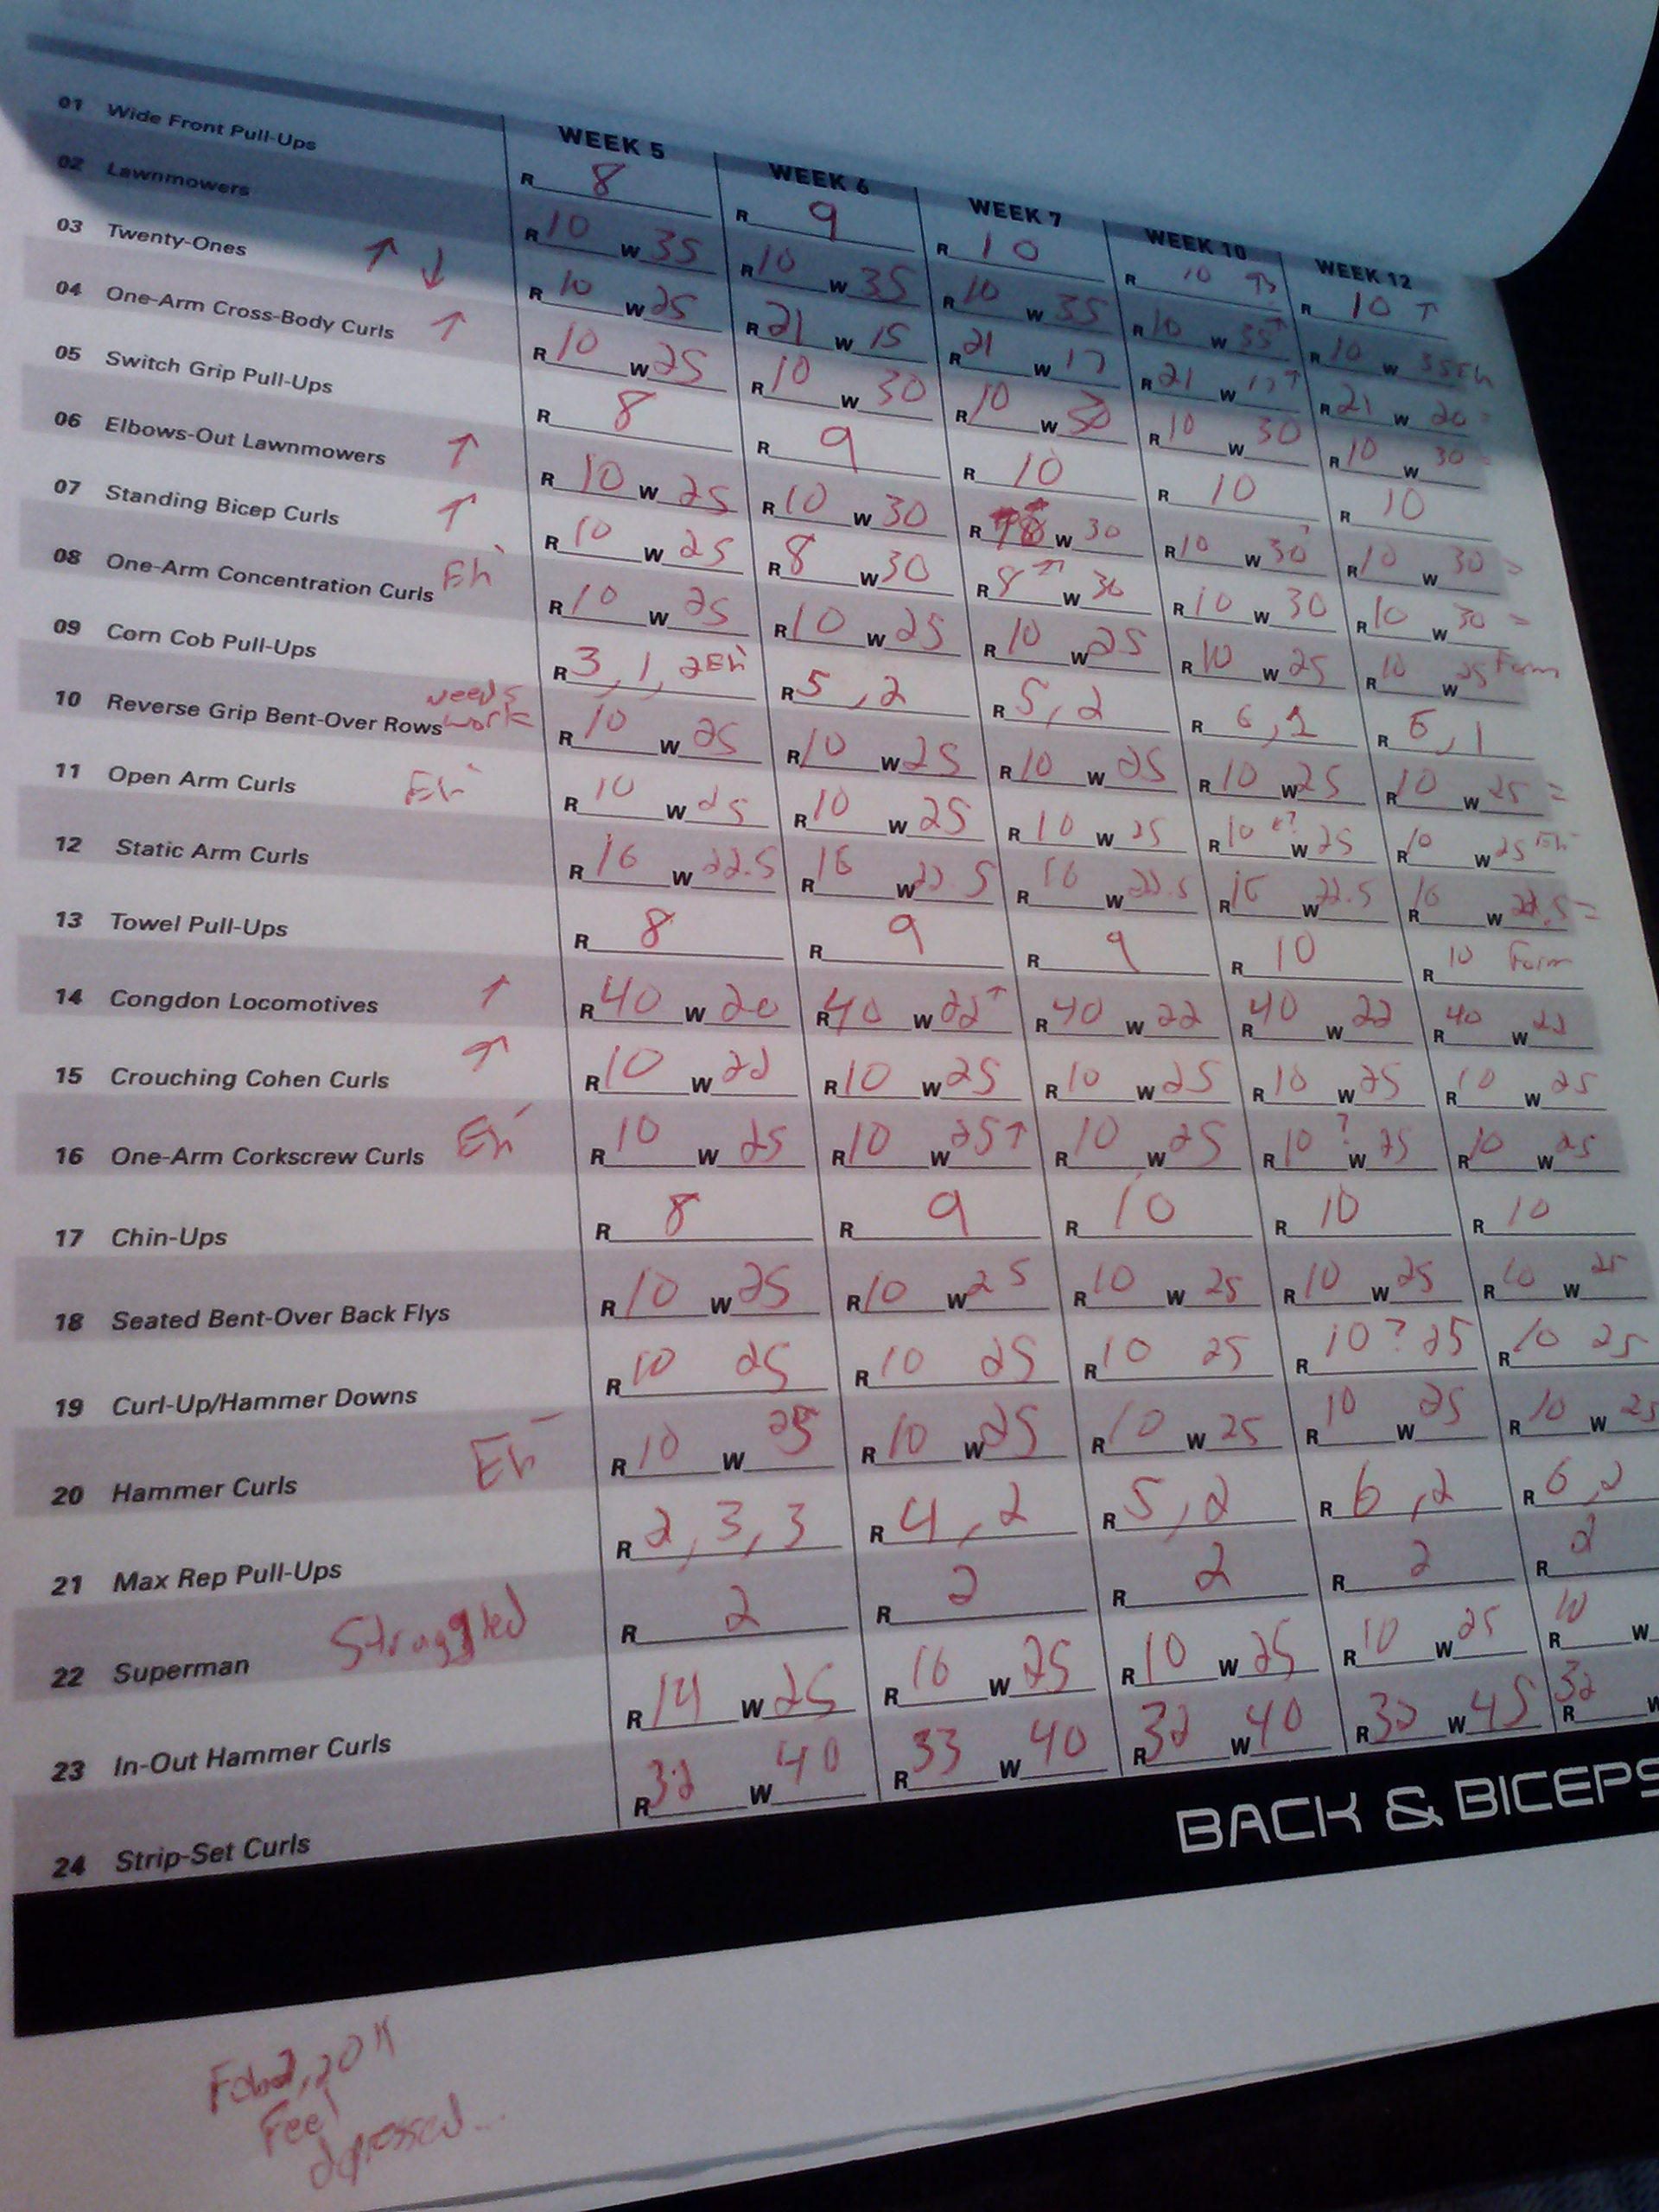 WEEK 5 WEEK 6 WEEK 7 WEEK 10 WEEK 12
01 Wide Front Pull-Ups R 8 R 9 R 10 R 10 R 10 ↑
02 Lawnmowers R 10 W 35 R 10 W 35 R 10 W 35 R 10 W 35 ↑ R 10 W 35 Eh
03 Twenty-Ones ↑ ↓ R 10 W 25 R 21 W 15 R 21 W 17 R 21 W 17 ↑ R 21 W 20 =
04 One-Arm Cross-Body Curls ↑ R 10 W 25 R 10 W 30 R 10 W 30 R 10 W 30 R 10 W 30 =
05 Switch Grip Pull-Ups R 8 R 9 R 10 R 10 R 10
06 Elbows-Out Lawnmowers ↑ R 10 W 25 R 10 W 30 R W 30 R 10 W 30 R 10 W 30 =
07 Standing Bicep Curls ↑ R 10 W 25 R 8 W 30 R 8 W 30 R 10 W 30 R 10 W 30 =
08 One-Arm Concentration Curls Eh R 10 W 25 R 10 W 25 R 10 W 25 R 10 W 25 R 10 W 25 Form
09 Corn Cob Pull-Ups R 3, 1, 2 Eh R 5, 2 R 5, 2 R 6, R , 1
10 Reverse Grip Bent-Over Rows needs work R 10 W 25 R 10 W 25 R 10 W 25 R 10 W 25 R 10 W 25 =
11 Open Arm Curls Eh R 10 W 25 R 10 W 25 R 10 W 25 R 10 W 25 R 10 W 25 Eh
12 Static Arm Curls R 16 W 22.5 R 16 W 22.5 R 16 W 22.5 R 16 W 22.5 R 16 W 22.5 =
13 Towel Pull-Ups R 8 R 9 R 9 R 10 R 10 Form
14 Congdon Locomotives ↑ R 40 W 20 R 40 W 22 ↑ R 40 W 22 R 40 W 22 R 40 W 22
15 Crouching Cohen Curls ↑ R 10 W 22 R 10 W 25 R 10 W 25 R 10 W 25 R 10 W 25
16 One-Arm Corkscrew Curls Eh R 10 W 25 R 10 W 25 ↑ R 10 W 25 R 10 ? W 25 R 10 W 25
17 Chin-Ups R 8 R 9 R 10 R 10 R 10
18 Seated Bent-Over Back Flys R 10 W 25 R 10 W 25 R 10 W 25 R 10 W 25 R 10 W 25
19 Curl-Up/Hammer Downs R 10 25 R 10 25 R 10 25 R 10 ? 25 R 10 25
20 Hammer Curls Eh R 10 W 25 R 10 W 25 R 10 W 25 R 10 W 25 R 10 W 25
21 Max Rep Pull-Ups R 2, 3, 3 R 4, 2 R 5, 2 R 6, 2 R 6, 2
22 Superman Struggled R 2 R 2 R 2 R 2 R 2
23 In-Out Hammer Curls R 14 W 25 R 16 W 25 R 10 W 25 R 10 W 25 R 10 W
24 Strip-Set Curls R 32 W 40 R 33 W 40 R 32 W 40 R 32 W 45 R 32 W
BACK & BICEPS
Feb 2, 2011
Feel
depressed...